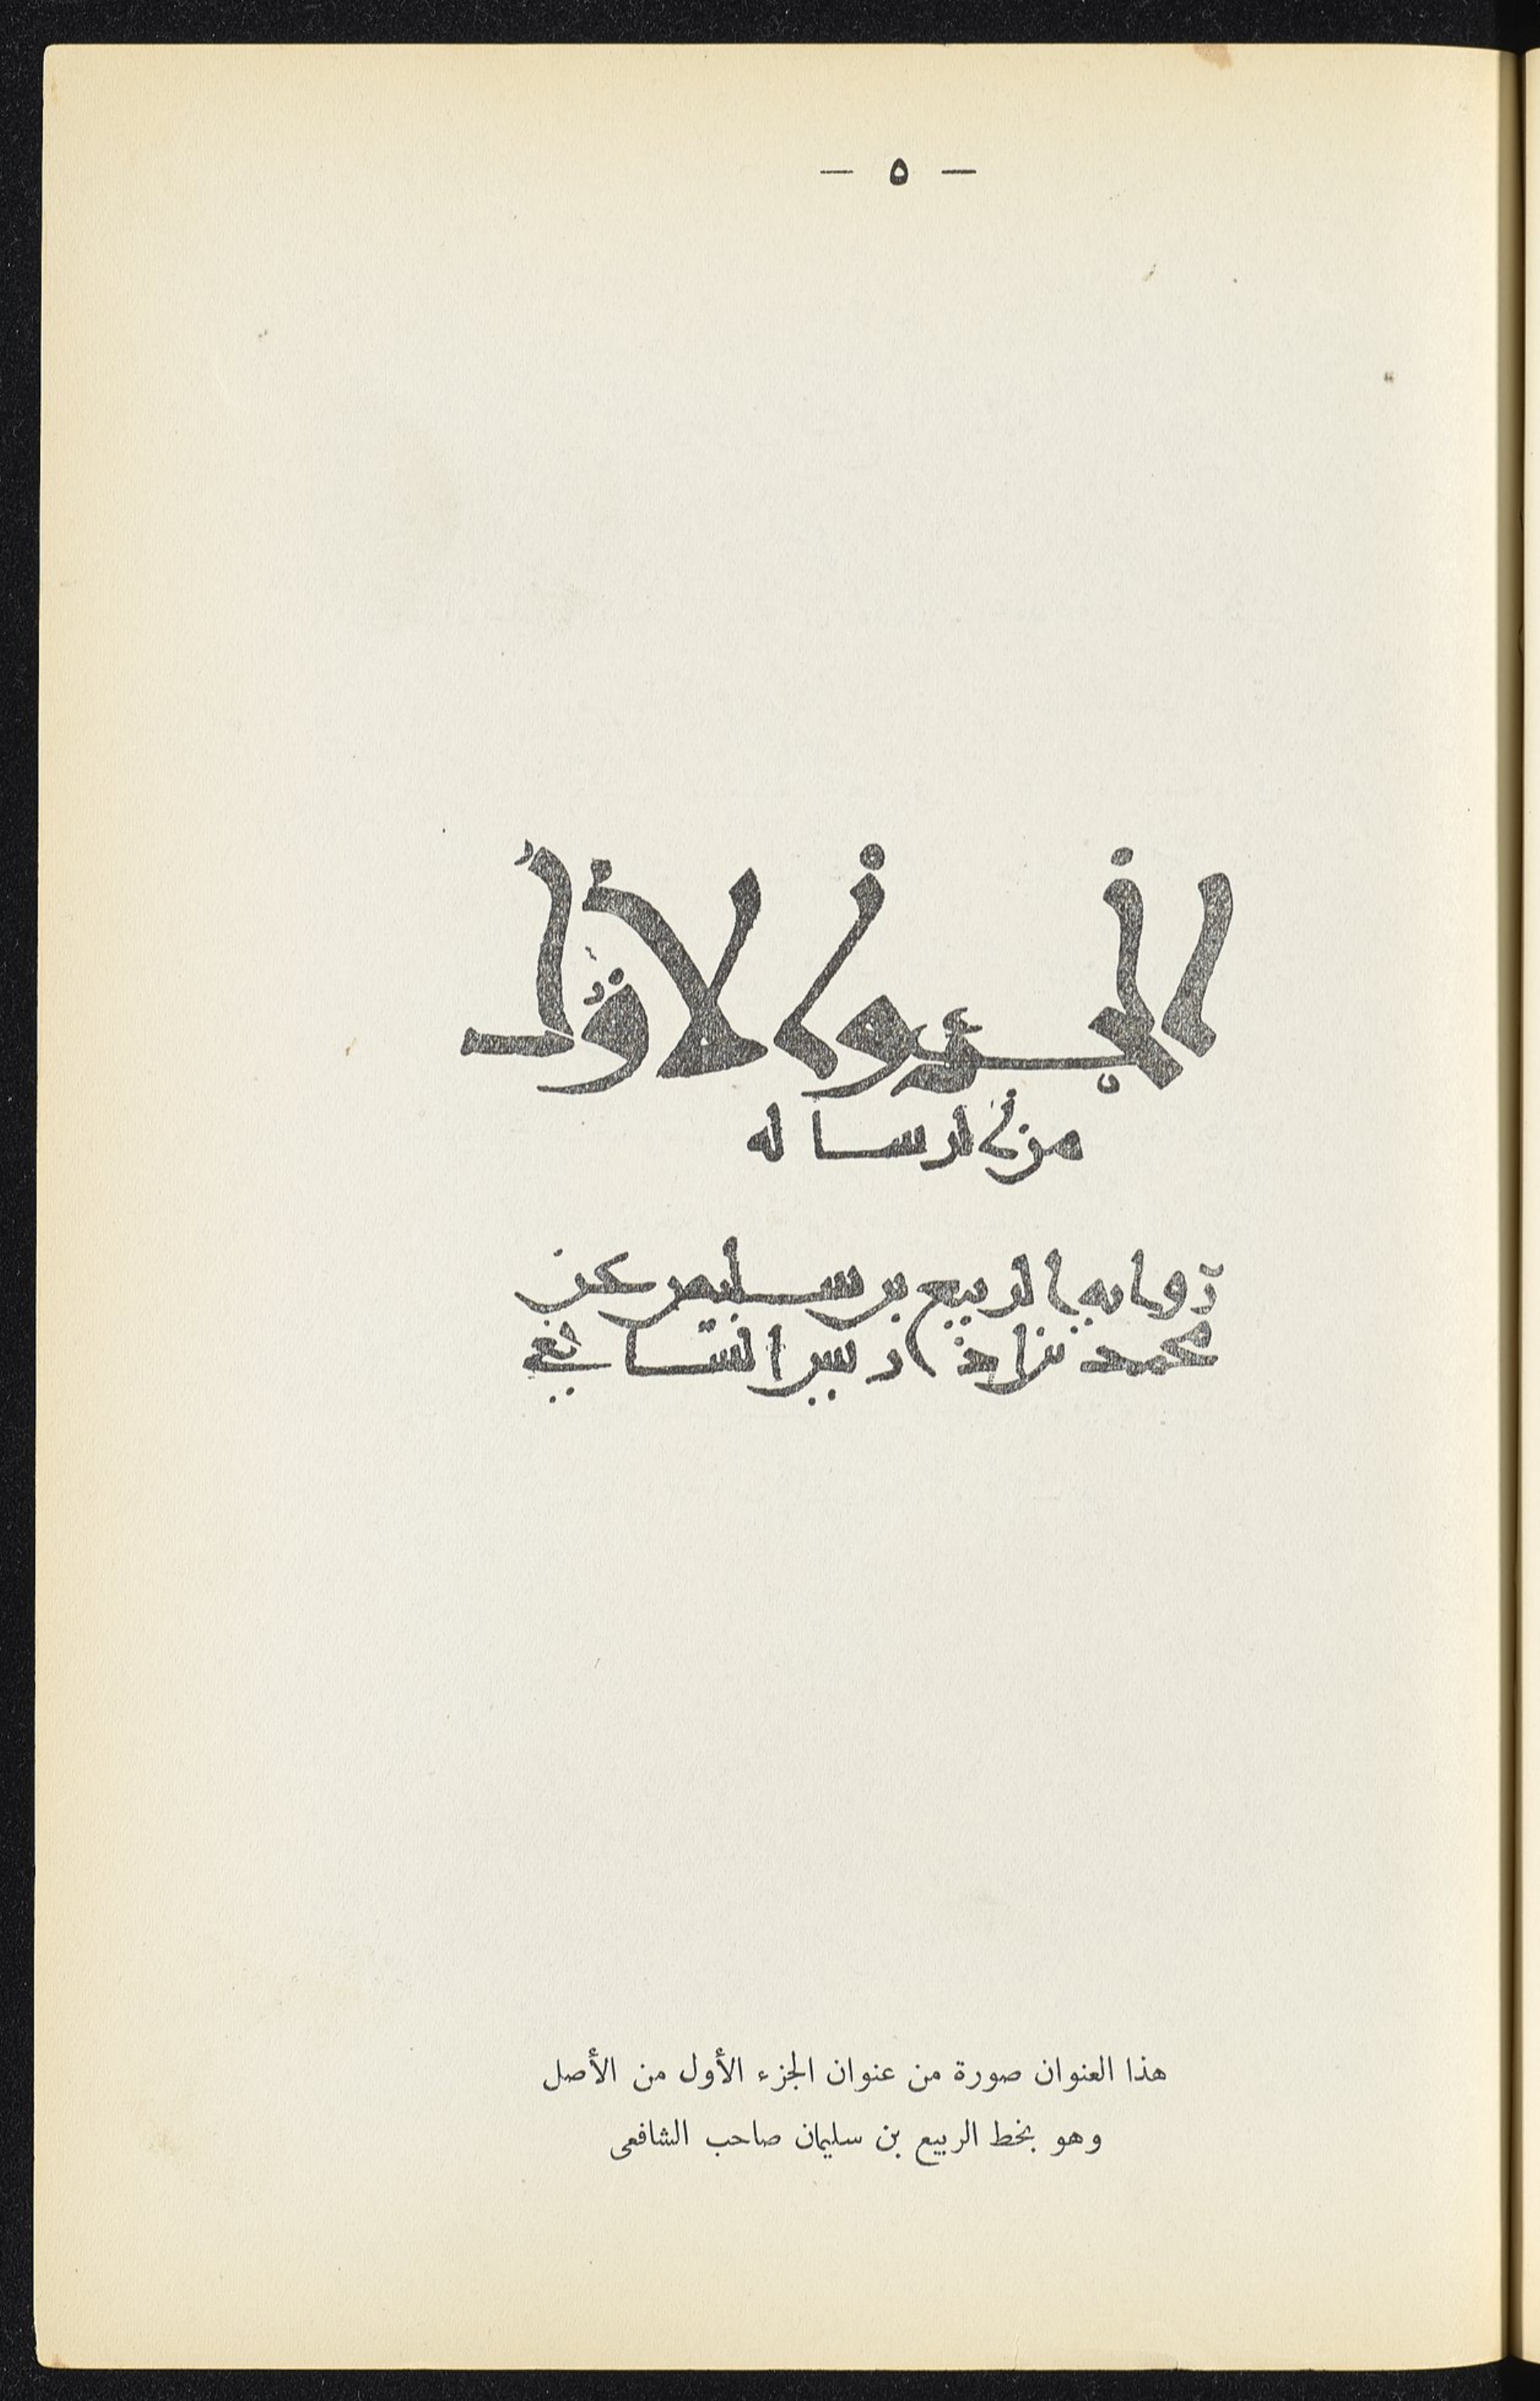 — ٥ —
الجزؤ الاوّل
من الرساله
روايه الربيع بن سليمن عن
محمد بن ادريس الشافعي
هذا العنوان صورة من عنوان الجزء الأول من الأصل
وهو بخط الربيع بن سليمان صاحب الشافعى